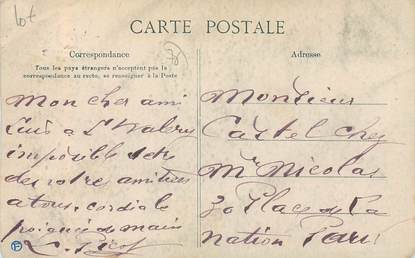 lot
CARTE POSTALE
Correspondance
Tous les pays étrangers n'acceptent pas la
correspondance au recto, se renseigner à la Poste
Mon cher ami
suis a St Valery
impossible
des votres amitiés
a tous, cordiale
poignée de main
Adresse
Monsieur
Castel chez
Mr Nicolas
30 Place de La
nation Paris